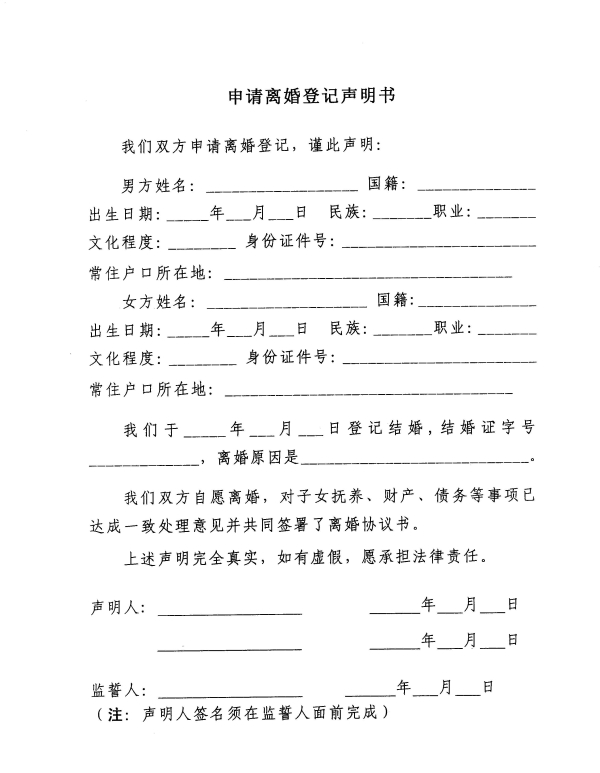 申请离婚登记声明书
我们双方申请离婚登记，谨此声明：
男方姓名：__________________ 国籍：______________
出生日期：_____年___月___日 民族：_______职业：_______
文化程度：________ 身份证件号：_______________________
常住户口所在地：__________________________________
女方姓名：___________________ 国籍：______________
出生日期：_____年___月___日 民族：_______职业：_______
文化程度：________ 身份证件号：_______________________
常住户口所在地：__________________________________
我们于_____年___月___日登记结婚，结婚证字号
_____________，离婚原因是___________________________。
我们双方自愿离婚，对子女抚养、财产、债务等事项已
达成一致处理意见并共同签署了离婚协议书。
上述声明完全真实，如有虚假，愿承担法律责任。
声明人：_________________ ______年___月___日
_________________ ______年___月___日
监誓人：_________________ ______年___月___日
（注：声明人签名须在监誓人面前完成）